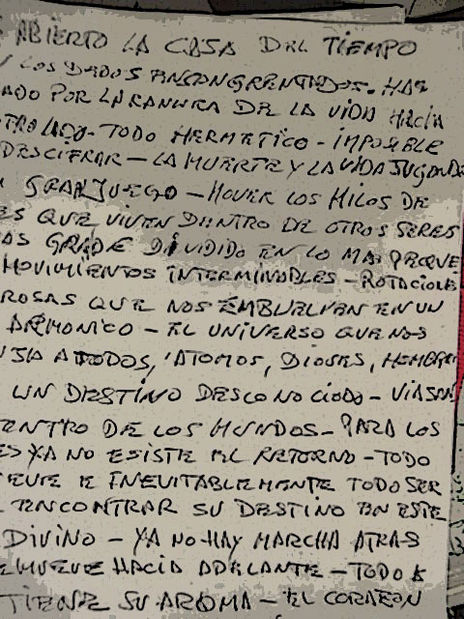 ABIERTO LA CASA DEL TIEMPO
LOS DEDOS ENCANGRENTADOS. HAS
ADO POR LA RANURA DE LA VIDA HACIA
TRO LADO - TODO HERMETICO - IMPOSIBLE
DESCIFRAR - LA MUERTE Y LA VIDA JUGANDO
GRAN JUEGO - MOVER LOS HILOS DE
ES QUE VIVEN DENTRO DE OTROS SERES
AS GRADE DIVIDIDO EN LO MAS PEQUE
MOVIMIENTOS INTERMINABLES - ROTACIONE
ROSAS QUE NOS EMBUELVEN EN UN
ARMONICO - EL UNIVERSO QUE NOS
A TODOS, ATOMOS, DIOSES, HEMBRA
UN DESTINO DESCONOCIDO - VIAS
ENTRO DE LOS MUNDOS - PARA LOS
ES YA NO ESISTE EL RETORNO - TODO
UEVE E INEVITABLEMENTE TODO SER
ENCONTRAR SU DESTINO EN ESTE
DIVINO - YA NO HAY MARCHA ATRAS
E MUEVE HACIA ADELANTE - TODO
TIENE SU AROMA - EL CORAZON